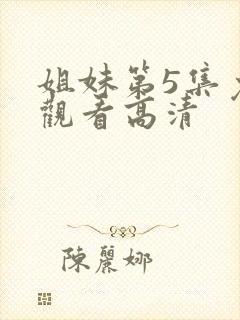 姐妹第5集
觀看高清
陳麗娜